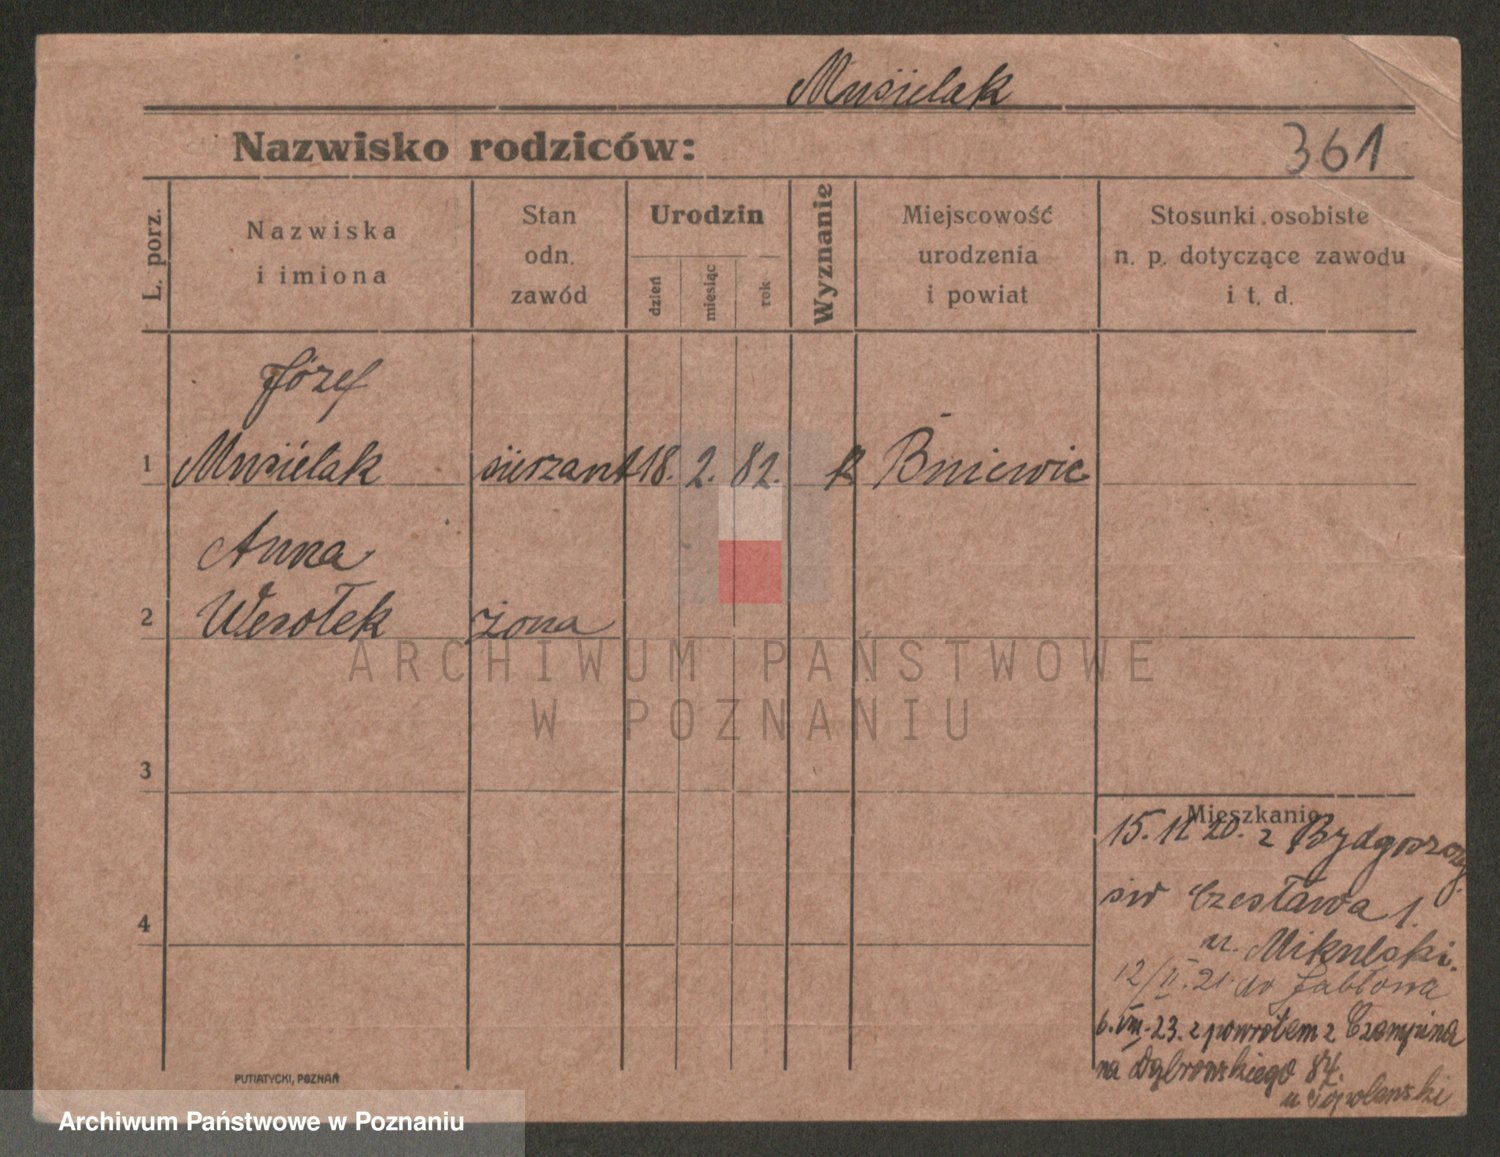 Musielak
Nazwisko rodziców:
361
L. porz.
Nazwiska
i imiona
Stan
odn.
zawód
Urodzin
dzień
miesiąc
rok
Wyznanie
Miejscowość
urodzenia
i powiat
Stosunki osobiste
n. p. dotyczące zawodu
i t. d.
Józef
1 Musielak sierzant 18. 2. 82. k Bniewic
Anna
2 Wesołek żona
ARCHIWUM PAŃSTWOWE
W POZNANIU
3
Mieszkanie
15. 11 20. z Bydgoszczy
św Czesława 1.
4
u. Mikulski.
12/II. 21 do Jabłona
6. VIII. 23. z powrotem z Czempina
na Dąbrowskiego 84.
u
PUTIATYCKI, POZNAŃ
Archiwum Państwowe w Poznaniu